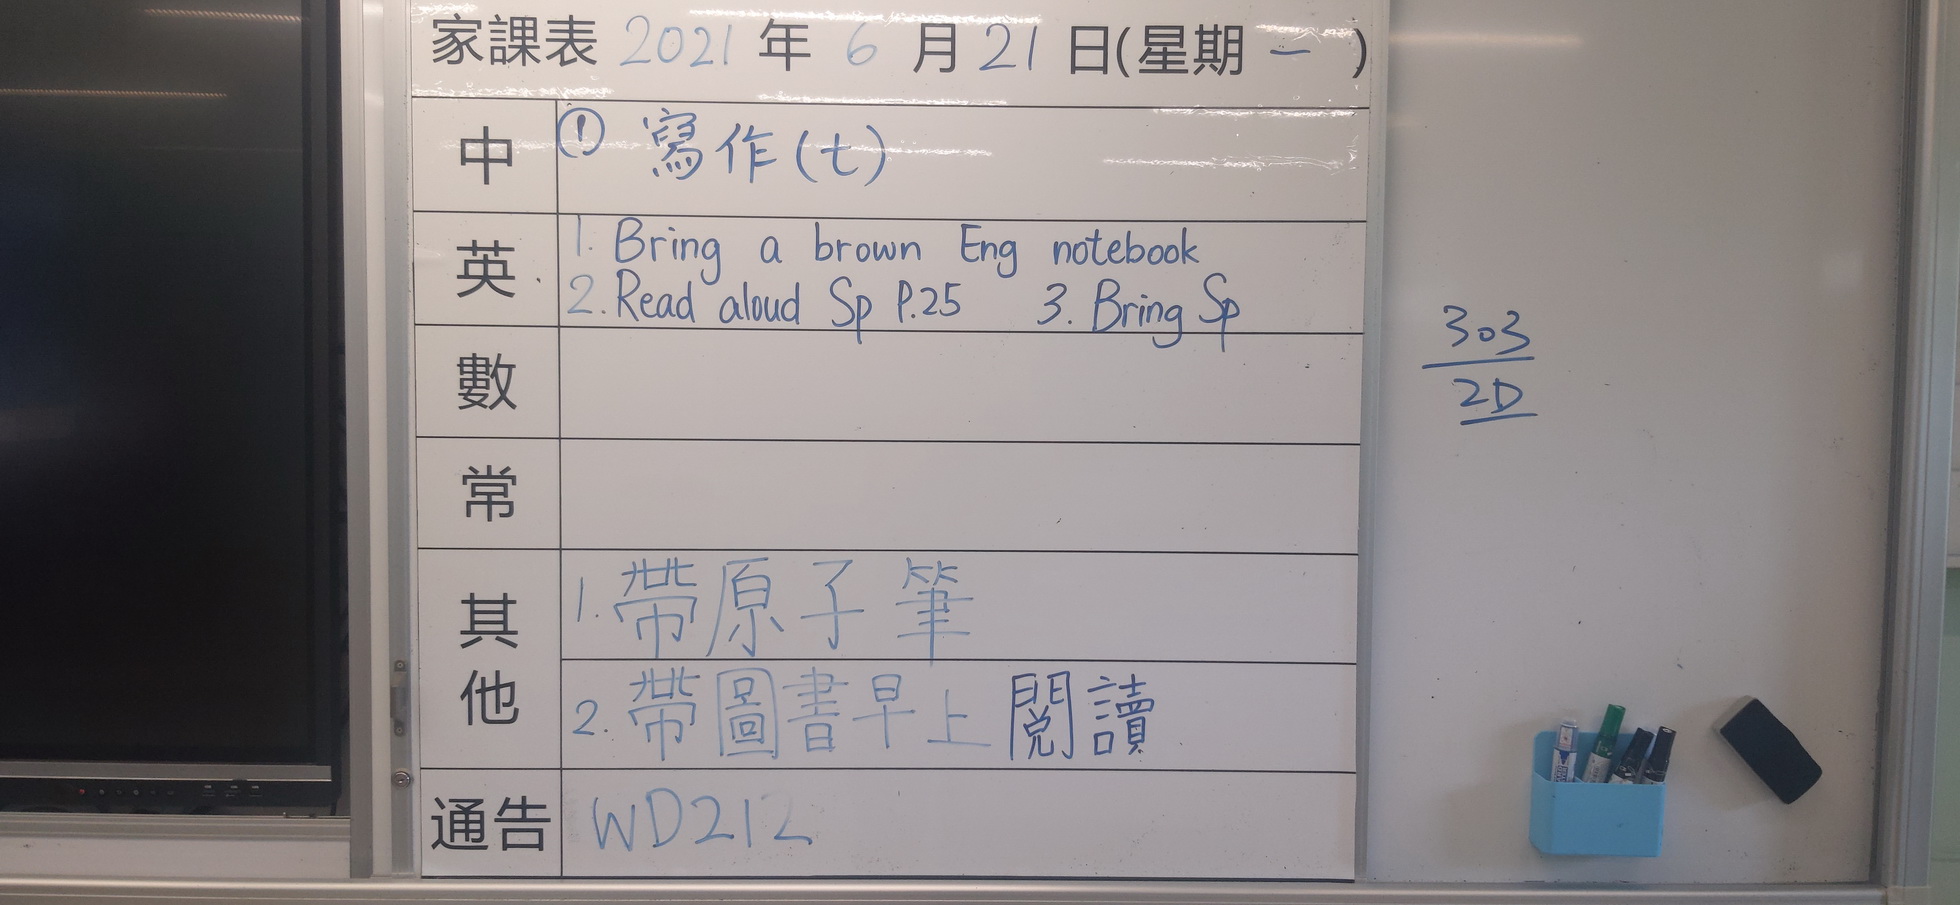 家課表 2021 年 6 月 21 日(星期 一 )
中 ① 寫作(七)
英 1. Bring a brown Eng notebook
2. Read aloud Sp P.25 3. Bring Sp
數
常
其他 1. 帶原子筆
2. 帶圖書早上閱讀
通告 WD212
303
2D